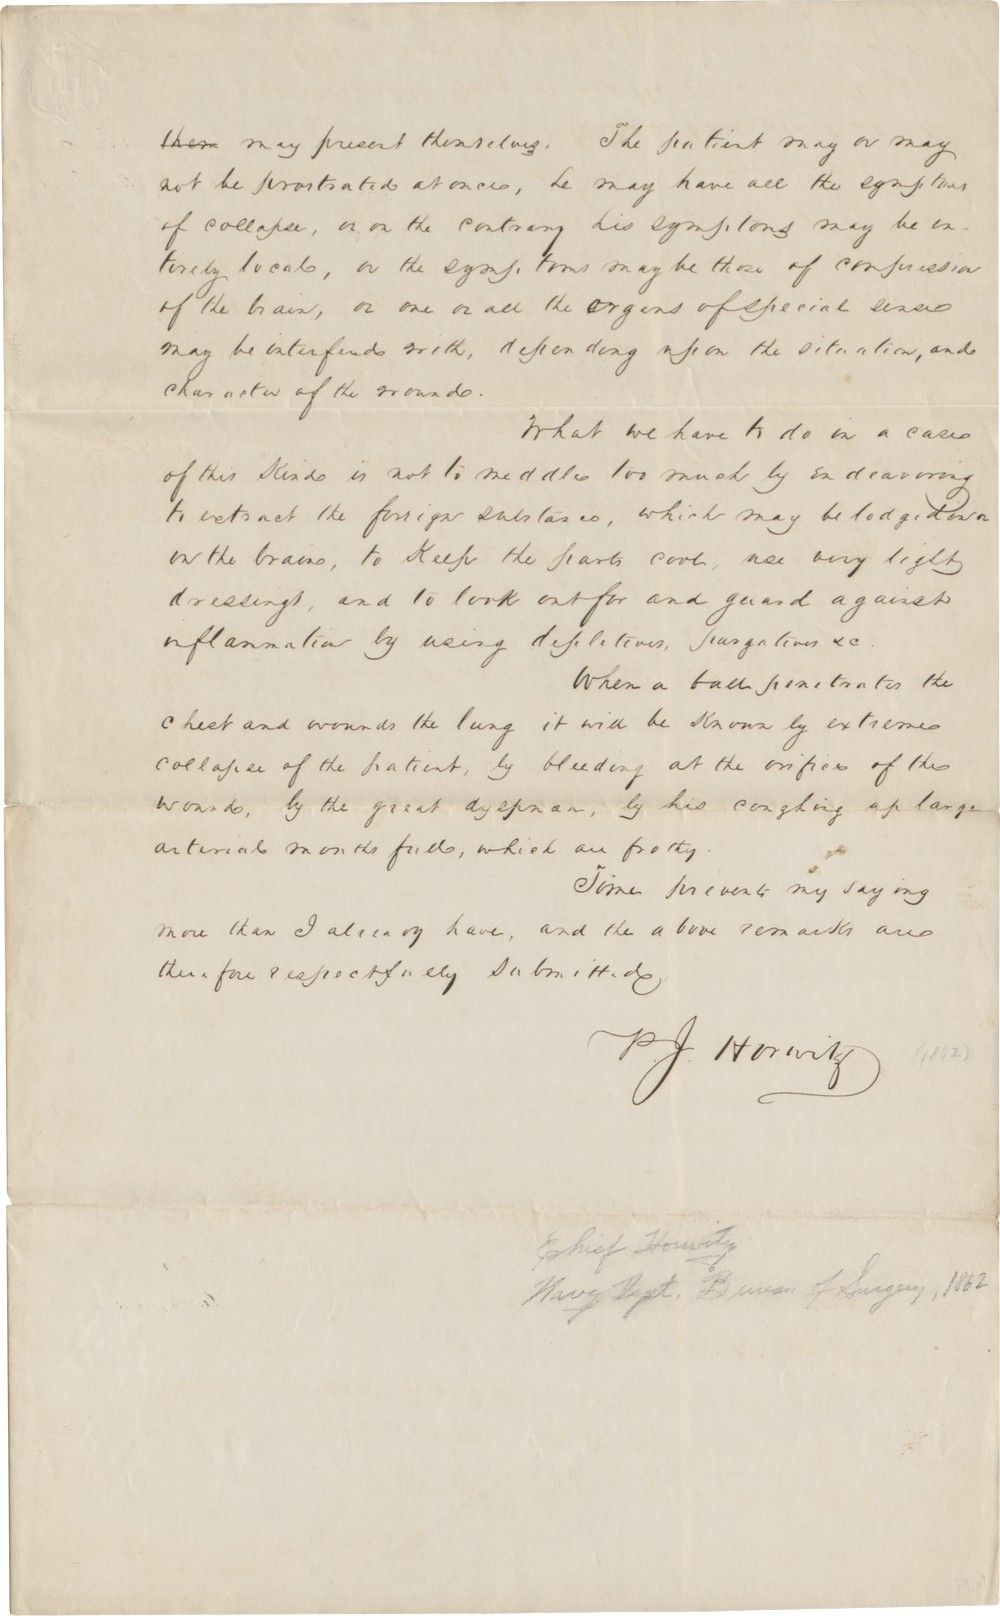 them may present themselves. The patient may or may
not be prostrated at once, he may have all the symptoms
of collapse, or on the contrary his symptoms may be en-
tirely local, or the symptoms may be those of compression
of the brain, or one or all the organs of special sense
may be interfered with, depending upon the situation, and
character of the wound.
What we have to do in a case
of this kind is not to meddle too much by endeavoring
to extract the foreign substance, which may be lodged down
in the brain, to keep the parts cool, use very light
dressings, and to look out for and guard against
inflammation by using depletives, purgatives &c.
When a ball penetrates the
chest and wounds the lung it will be known by extreme
collapse of the patient, by bleeding at the orifice of the
wound, by the great dyspnœa, by his coughing up large
arterial mouths full, which are frothy.
Time prevents my saying
more than I already have, and the above remarks are
therefore respectfully submitted,
P. J. Horwitz (1862)
Chief Horwitz
Navy Dept. Bureau of Surgery, 1862